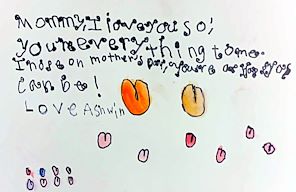 Mommy, I love you so!
you're everything to me.
I hose on mother's Day, you're as
can be!
Love Ashwin